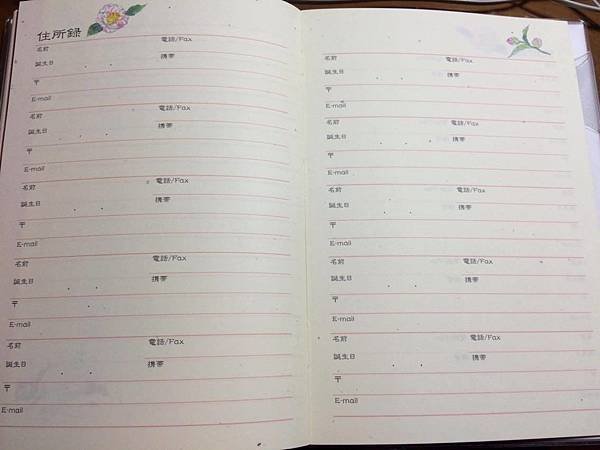 住所録
名前 電話/Fax
誕生日 . . 携帯
〒
E-mail
名前 電話/Fax
誕生日 . . 携帯
〒
E-mail
名前 電話/Fax
誕生日 . . 携帯
〒
E-mail
名前 電話/Fax
誕生日 . . 携帯
〒
E-mail
名前 電話/Fax
誕生日 . . 携帯
〒
E-mail
名前 電話/Fax
誕生日 . . 携帯
〒
E-mail
名前 電話/Fax
誕生日 . . 携帯
〒
E-mail
名前 電話/Fax
誕生日 . . 携帯
〒
E-mail
名前 電話/Fax
誕生日 . . 携帯
〒
E-mail
名前 電話/Fax
誕生日 . . 携帯
〒
E-mail